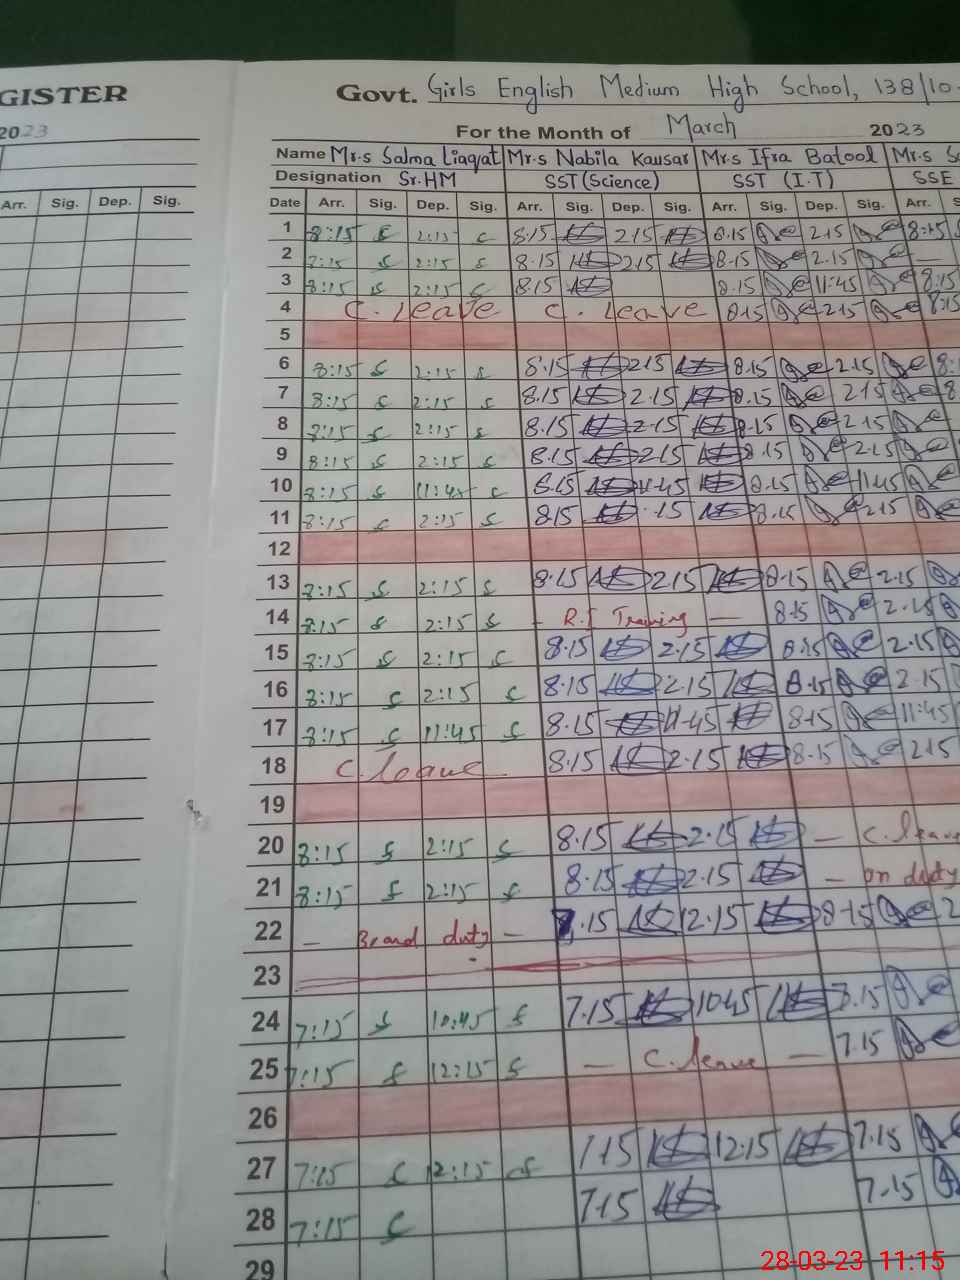 GISTER
2023
Arr. Sig. Dep. Sig.
Govt. Girls English Medium High School, 138/10-
For the Month of March 2023
Name Mr.s Salma Liaqat Mr.s Nabila Kausar Mr.s Ifra Batool Mr.s Sa
Designation Sr.HM SST (Science) SST (I.T) SSE
Date Arr. Sig. Dep. Sig. Arr. Sig. Dep. Sig. Arr. Sig. Dep. Sig. Arr. S
1 8:15 2:15 8.15 2.15 8.15 2.15 8:15
2 8:15 2:15 8.15 2.15 8.15 2.15 —
3 8:15 2:15 8.15 8.15 11:45 8:15
4 C. Leave C. Leave 8.15 2.15 8:15
5
6 8:15 2:15 8.15 2.15 8.15 2.15 8:
7 8:15 2:15 8.15 2.15 8.15 2.15 8
8 8:15 2:15 8.15 2.15 8.15 2.15
9 8:15 2:15 8.15 2.15 8.15 2.15
10 8:15 11:45 8.15 11.45 8.15 11.45
11 8:15 2:15 8.15 .15 8.15 2.15
12
13 8:15 2:15 8.15 2.15 8.15 2.15
14 8:15 2:15 — Training — 8.15 2.15
15 8:15 2:15 8.15 2.15 8.15 2.15
16 8:15 2:15 8.15 2.15 8.15 2.15
17 8:15 11:45 8.15 11.45 8.15 11:45
18 C. leave 8.15 2.15 8.15 2.15
19
20 8:15 2:15 8.15 2.15 — C. leave
21 8:15 2:15 8.15 2.15 — on duty
22 — Board duty — .15 12.15 8.15 2
23
24 7:15 10:45 7.15 10.45 7.15
25 7:15 12:15 — C. leave — 7.15
26
27 7:15 12:15 7.15 12.15 7.15
28 7:15 7.15 7.15
29
28-03-23 11:15